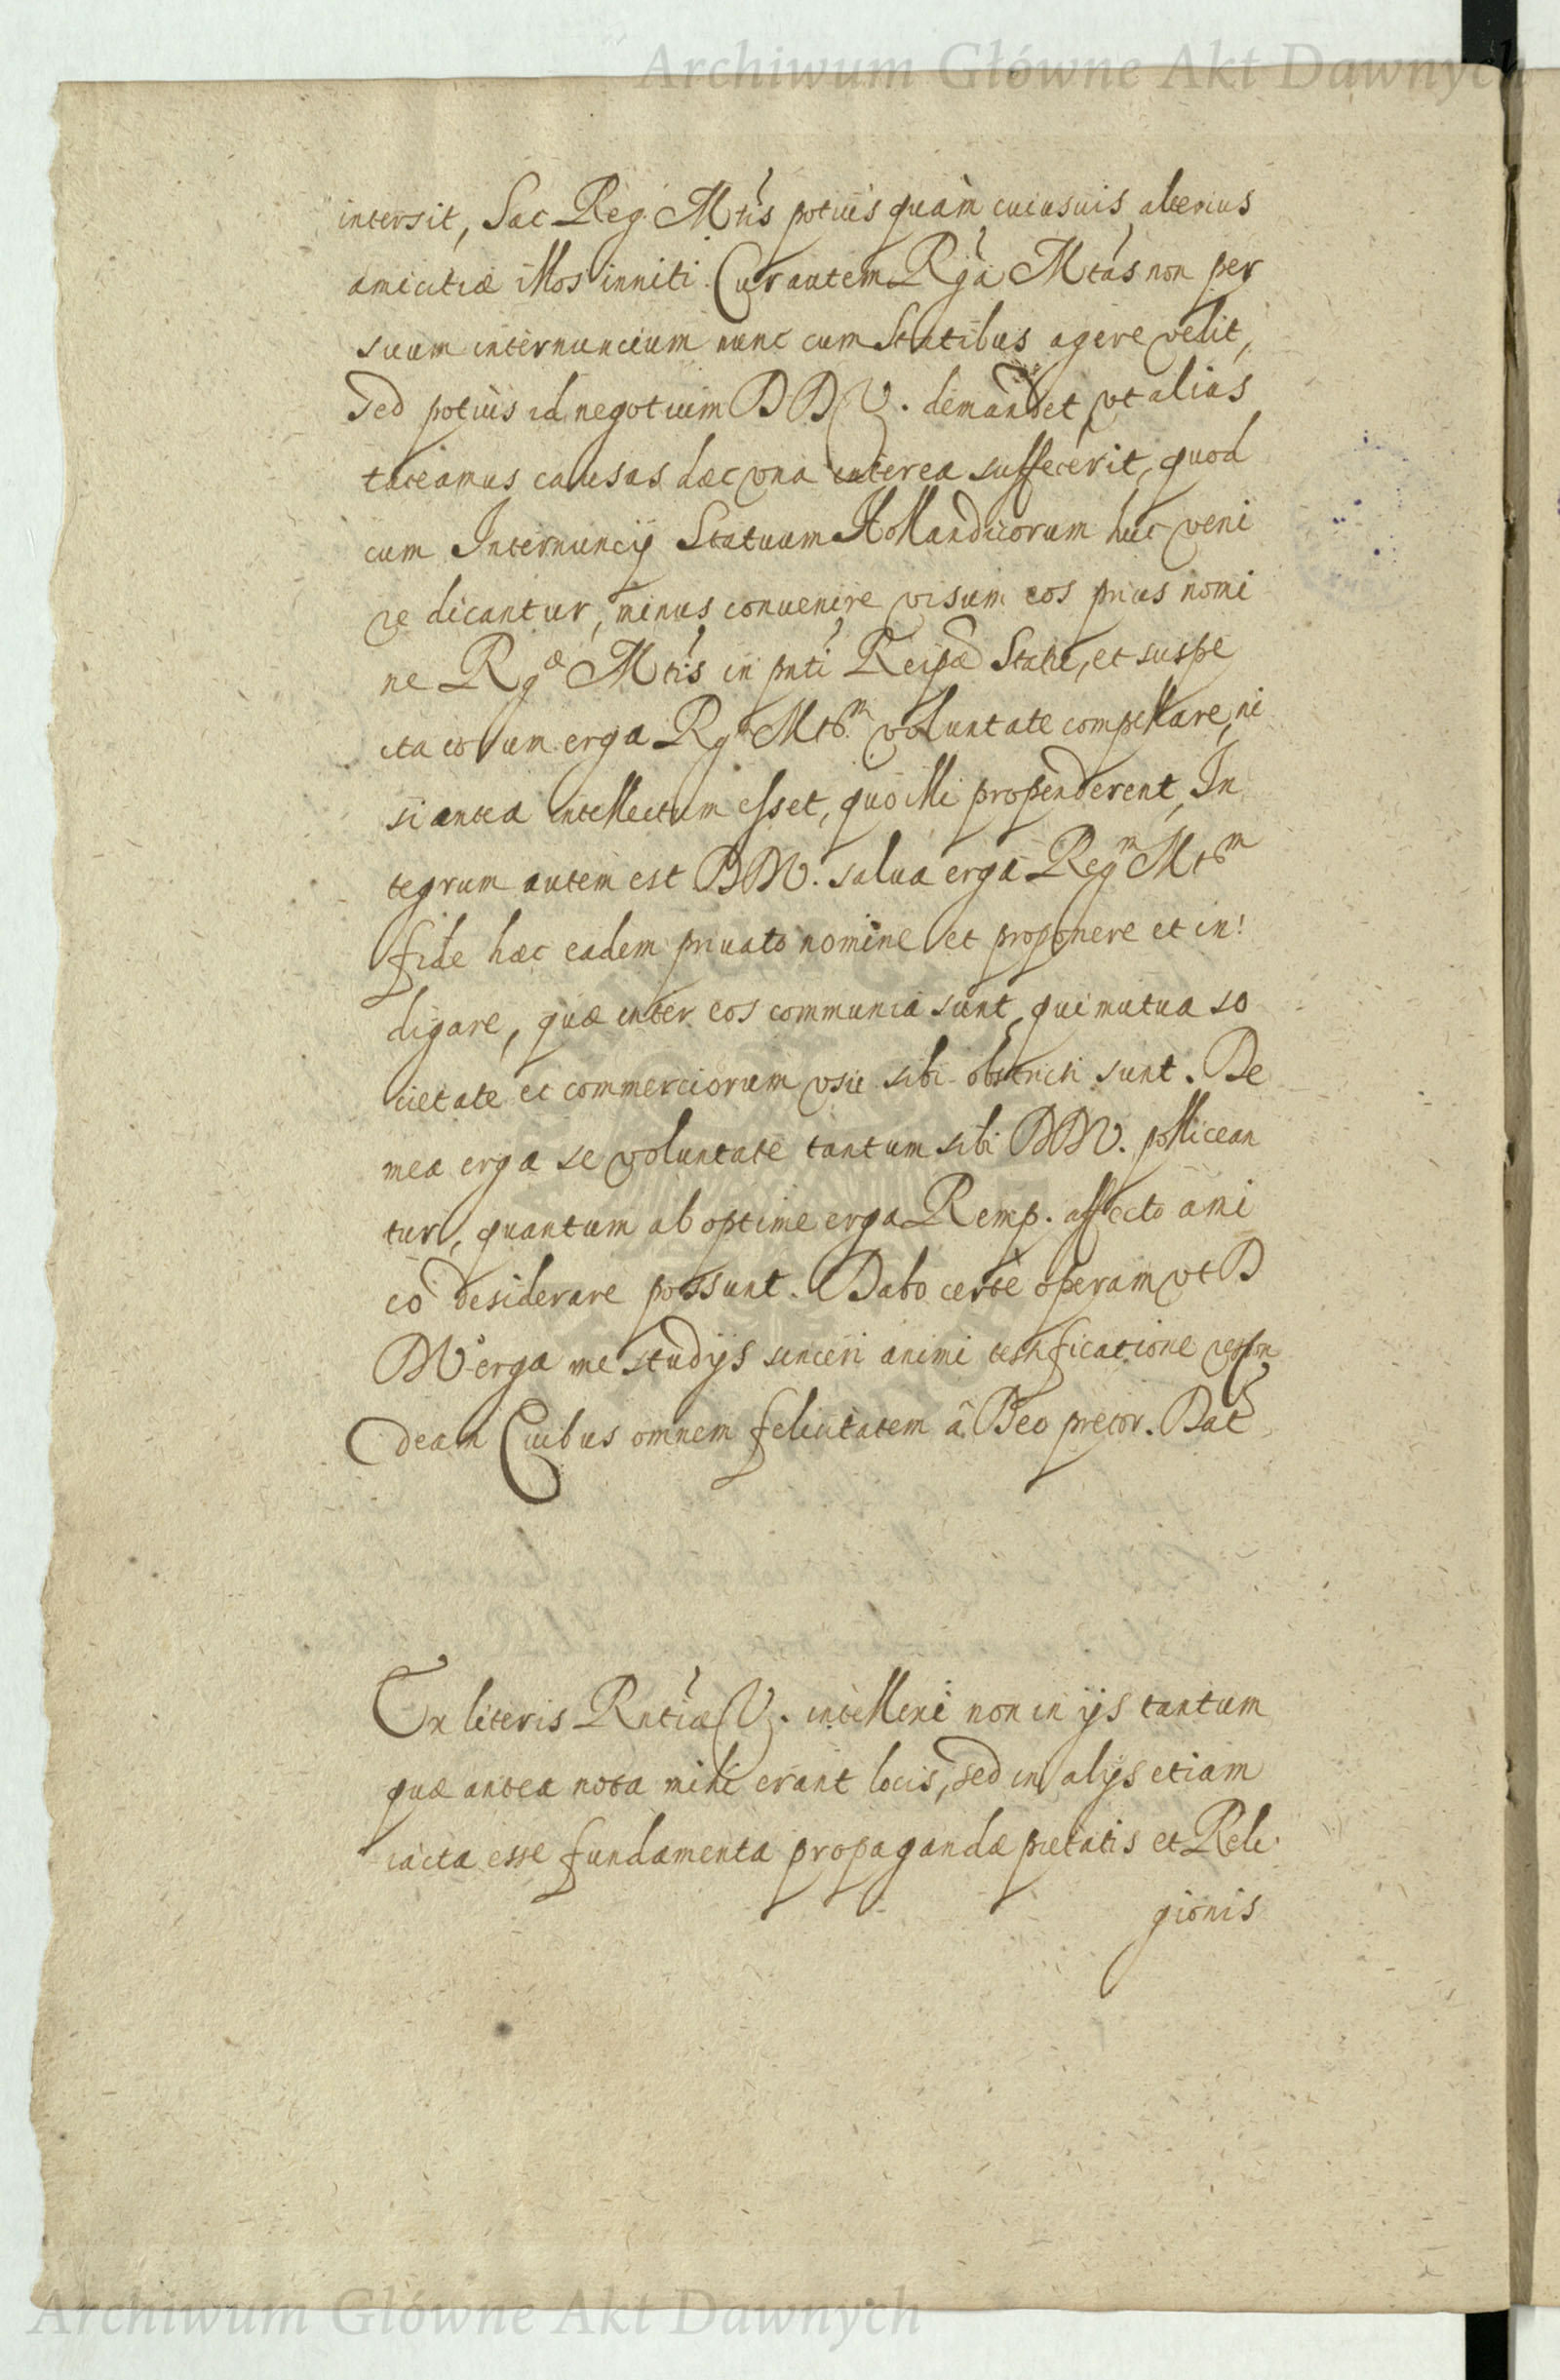 Archiwum Główne Akt Dawnych
intersit, Sac Reg. Mtis potiùs quàm cuiusuis alterius
amicitiæ illos inniti. Cur autem Rga Mtas non per
suum internuncium nunc cum Statibus agere velit,
sed potiùs id negotium DD V. demandet, vt alias
taceamus causas hæc vna interea suffecerit, quod
cum Internuncij Statuum Hollandicorum huc veni
re dicantur, minus conuenire visum eos prius nomi
ne Rgæ Mtis in pnti Reipæ Statu, et suspe
cta eorum erga Rgm Mtem voluntate compellare, ni
si antea intellectum esset, quo illi propenderent, In
tegrum autem est DD V. salua erga Regm Mtem
fide hæc eadem priuato nomine et proponere et in
digare, quæ inter eos communia sunt, qui mutua so
cietate et commerciorum vsu sibi obstricti sunt. De
mea erga se voluntate tantum sibi DD V. pollicean
tur, quantum ab optime erga Remp. affecto ami
co desiderare possunt. Dabo certè operam vt D
D V erga me studijs sinceri animi testificatione respon
deam Quibus omnem felicitatem à Deo precor. Dat
Ex literis Rntiæ V. intellexi non in ijs tantum
quæ antea nota mihi erant locis, sed in alijs etiam
iacta esse fundamenta propagandæ pietatis et Reli
gionis
Archiwum Główne Akt Dawnych